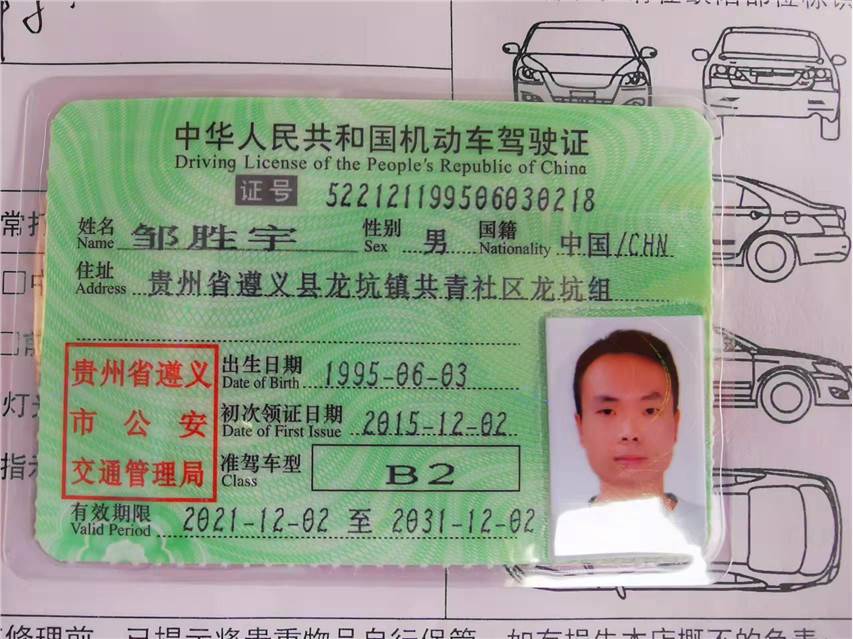 中华人民共和国机动车驾驶证
Driving License of the People's Republic of China
证号 522121199506030218
姓名 邹胜宇 性别 男 国籍 中国/CHN
Name Sex Nationality
住址 贵州省遵义县龙坑镇共青社区龙坑组
Address
贵州省遵义
市公安
交通管理局
出生日期 1995-06-03
Date of Birth
初次领证日期 2015-12-02
Date of First Issue
准驾车型 B2
Class
有效期限 2021-12-02 至 2031-12-02
Valid Period
常打
灯光
指示
修理前，已提示将贵重物品自行保管，如有损失本店概不负责